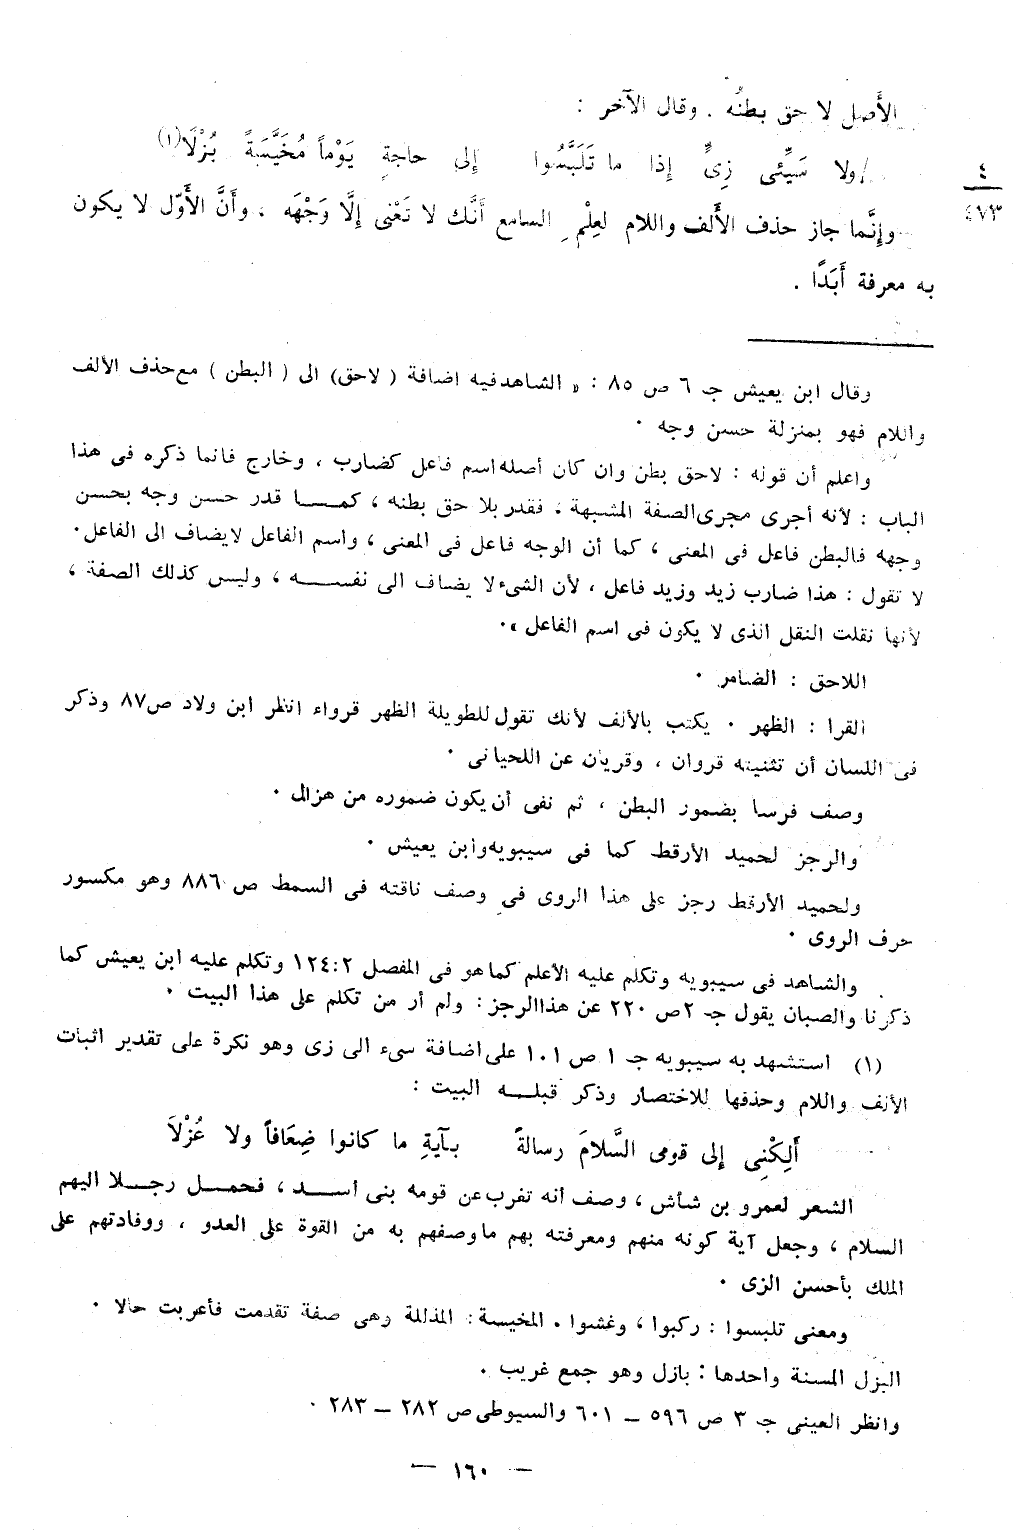 الأَصل لا حق بطنُه . وقال الآخر :
/ ولا سَيِّئى زِىٍّ إذا ما تَلَبَّسُوا إلى حاجةٍ يَوْماً مُخَيَّسَةً بُزْلَا(١)
٤
٤٧٣
وإِنَّما جاز حذف الأَلف واللام لعِلْمِ السامع أَنَّك لا تَعْنى إِلَّا وَجْهَه ، وأَنَّ الأَوّل لا يكون
به معرفة أَبَدًا .
وقال ابن يعيش جـ ٦ ص ٨٥ : « الشاهد فيه اضافة ( لاحق) الى ( البطن ) مع حذف الألف
واللام فهو بمنزلة حسن وجه ٠
واعلم أن قوله : لاحق بطن وان كان أصله اسم فاعل كضارب ، وخارج فانما ذكره فى هذا
الباب : لأنه أجرى مجرى الصفة المشبهة ، فقدر بلا حق بطنه ، كمــا قدر حسن وجه بحسن
وجهه فالبطن فاعل فى المعنى ، كما أن الوجه فاعل فى المعنى ، واسم الفاعل لا يضاف الى الفاعل٠
لا تقول : هذا ضارب زيد وزيد فاعل ، لأن الشىء لا يضاف الى نفســـه ، وليس كذلك الصفة ،
لأنها نقلت النقل الذى لا يكون فى اسم الفاعل »٠
اللاحق : الضامر ٠
القرا : الظهر ٠ يكتب بالألف لأنك تقول للطويلة الظهر قرواء انظر ابن ولاد ص٨٧ وذكر
فى اللسان أن تثنيته قروان ، وقريان عن اللحيانى ٠
وصف فرسا بضمور البطن ، ثم نفى أن يكون ضموره من هزال ٠
والرجز لحميد الأرقط كما فى سيبويه وابن يعيش ٠
ولحميد الأرقط رجز على هذا الروى فى وصف ناقته فى السمط ص ٨٨٦ وهو مكسور
حرف الروى ٠
والشاهد فى سيبويه وتكلم عليه الأعلم كما هو فى المفصل ٢ : ١٢٤ وتكلم عليه ابن يعيش كما
ذكرنا والصبان يقول جـ ٢ ص ٢٢٠ عن هذا الرجز : ولم أر من تكلم على هذا البيت ٠
(١) استشهد به سيبويه جـ ١ ص ١٠١ على اضافة سىء الى زى وهو نكرة على تقدير اثبات
الألف واللام وحذفها للاختصار وذكر قبلــه البيت :
أَلِكْنِى إلى قومى السَّلامَ رسالةً بآيةِ ما كانوا ضِعَافاً ولا عُزْلاَ
الشعر لعمرو بن شأش ، وصف أنه تغرب عن قومه بنى أســد ، فحمــل رجــلا اليهم
السلام ، وجعل آية كونه منهم ومعرفته بهم ما وصفهم به من القوة على العدو ، ووفادتهم على
الملك بأحسن الزى ٠
ومعنى تلبسوا : ركبوا ، وغشوا . المخيسة : المذللة وهى صفة تقدمت فأعربت حالا ٠
البزل المسنة واحدها : بازل وهو جمع غريب .
وانظر العينى جـ ٣ ص ٥٩٦ – ٦٠١ والسيوطى ص ٢٨٢ – ٢٨٣ ٠
– ١٦٠ –